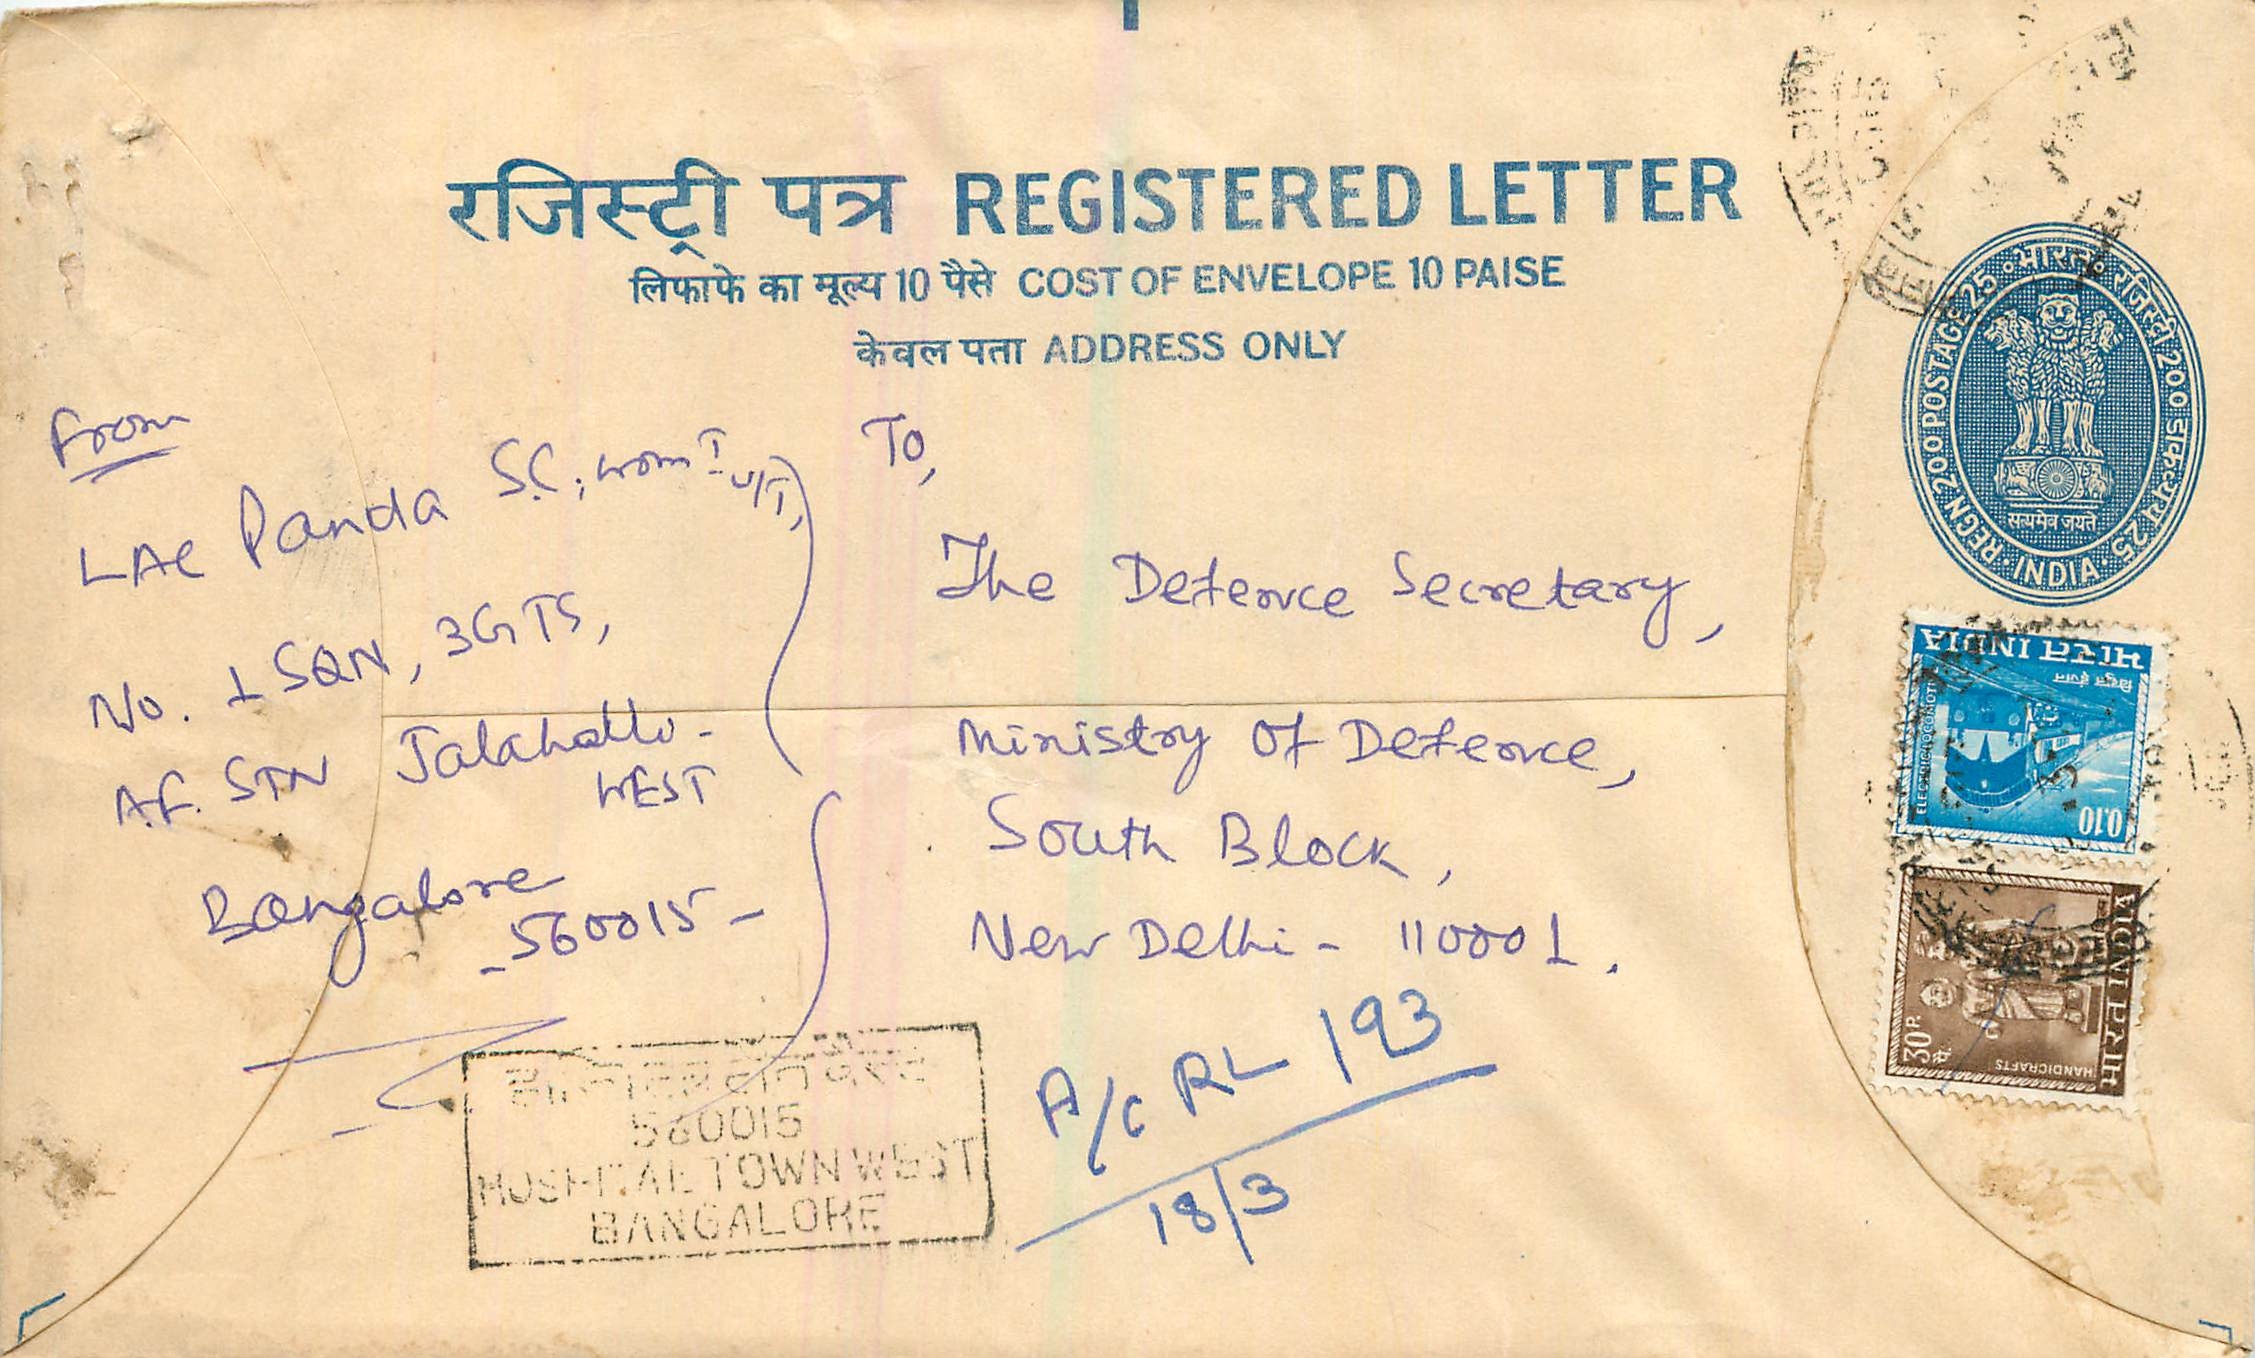 रजिस्ट्री पत्र REGISTERED LETTER
लिफाफे का मूल्य 10 पैसे COST OF ENVELOPE 10 PAISE
केवल पता ADDRESS ONLY
भारत रजिस्ट्री 200 डाकव्यय 25
REGN. 200 POSTAGE 25
INDIA
सत्यमेव जयते
From
LAC Panda S.C, U/T,
No. 1 SQN, 3GTS,
A.F. STN Jalahalli-
WEST
Bangalore
- 560015 -
To,
The Defence Secretary,
Ministry Of Defence,
South Block,
New Delhi - 110001.
भारत INDIA
विद्युत इंजन
ELECTRIC LOCOMOTIVE
0.10
भारत INDIA
30 P.
HANDICRAFTS
A/C RL 193
18/3
560015
HOSPITAL TOWN WEST
BANGALORE